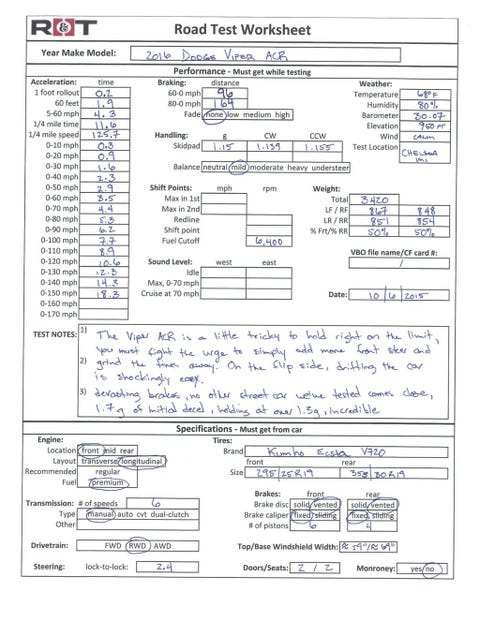 R&T Road Test Worksheet
Year Make Model: 2016 Dodge Viper ACR
Performance - Must get while testing
Acceleration: time
1 foot rollout 0.2
60 feet 1.9
5-60 mph 4.3
1/4 mile time 11.6
1/4 mile speed 125.7
0-10 mph 0.3
0-20 mph 0.9
0-30 mph 1.6
0-40 mph 2.3
0-50 mph 2.9
0-60 mph 3.5
0-70 mph 4.4
0-80 mph 5.3
0-90 mph 6.2
0-100 mph 7.7
0-110 mph 8.9
0-120 mph 10.6
0-130 mph 12.3
0-140 mph 14.3
0-150 mph 18.3
0-160 mph
0-170 mph
Braking: distance
60-0 mph 96
80-0 mph 164
Fade none low medium high
Handling: g CW CCW
Skidpad 1.15 1.139 1.155
Balance neutral mild moderate heavy understeer
Shift Points: mph rpm
Max in 1st
Max in 2nd
Redline
Shift point
Fuel Cutoff 6,400
Sound Level: west east
Idle
Max, 0-70 mph
Cruise at 70 mph
Weather:
Temperature 68°F
Humidity 80%
Barometer 30.07
Elevation 960 FT
Wind CALM
Test Location CHELSEA MI
Weight:
Total 3420
LF / RF 867 848
LR / RR 851 854
% Frt/% RR 50% 50%
VBO file name/CF card #:
/
Date: 10/6/2015
TEST NOTES: 1) The Viper ACR is a little tricky to hold right on the limit,
you must fight the urge to simply add more front steer and
2) grind the tires away. On the flip side, drifting the car
is shockingly easy.
3) devasting brakes, no other street car we've tested comes close,
1.7 g of initial decel, holding at over 1.3g, incredible
Specifications - Must get from car
Engine:
Location front mid rear
Layout transverse longitudinal
Recommended regular
Fuel premium
Transmission: # of speeds 6
Type manual auto cvt dual-clutch
Other
Drivetrain: FWD RWD AWD
Steering: lock-to-lock: 2.4
Tires:
Brand Kumho Ecsta V720
front rear
Size 295/25R19 355/30R19
Brakes: front rear
Brake disc solid/vented solid/vented
Brake caliper fixed/sliding fixed/sliding
# of pistons 6 4
Top/Base Windshield Width:
Doors/Seats: 2 / 2 Monroney: yes/no